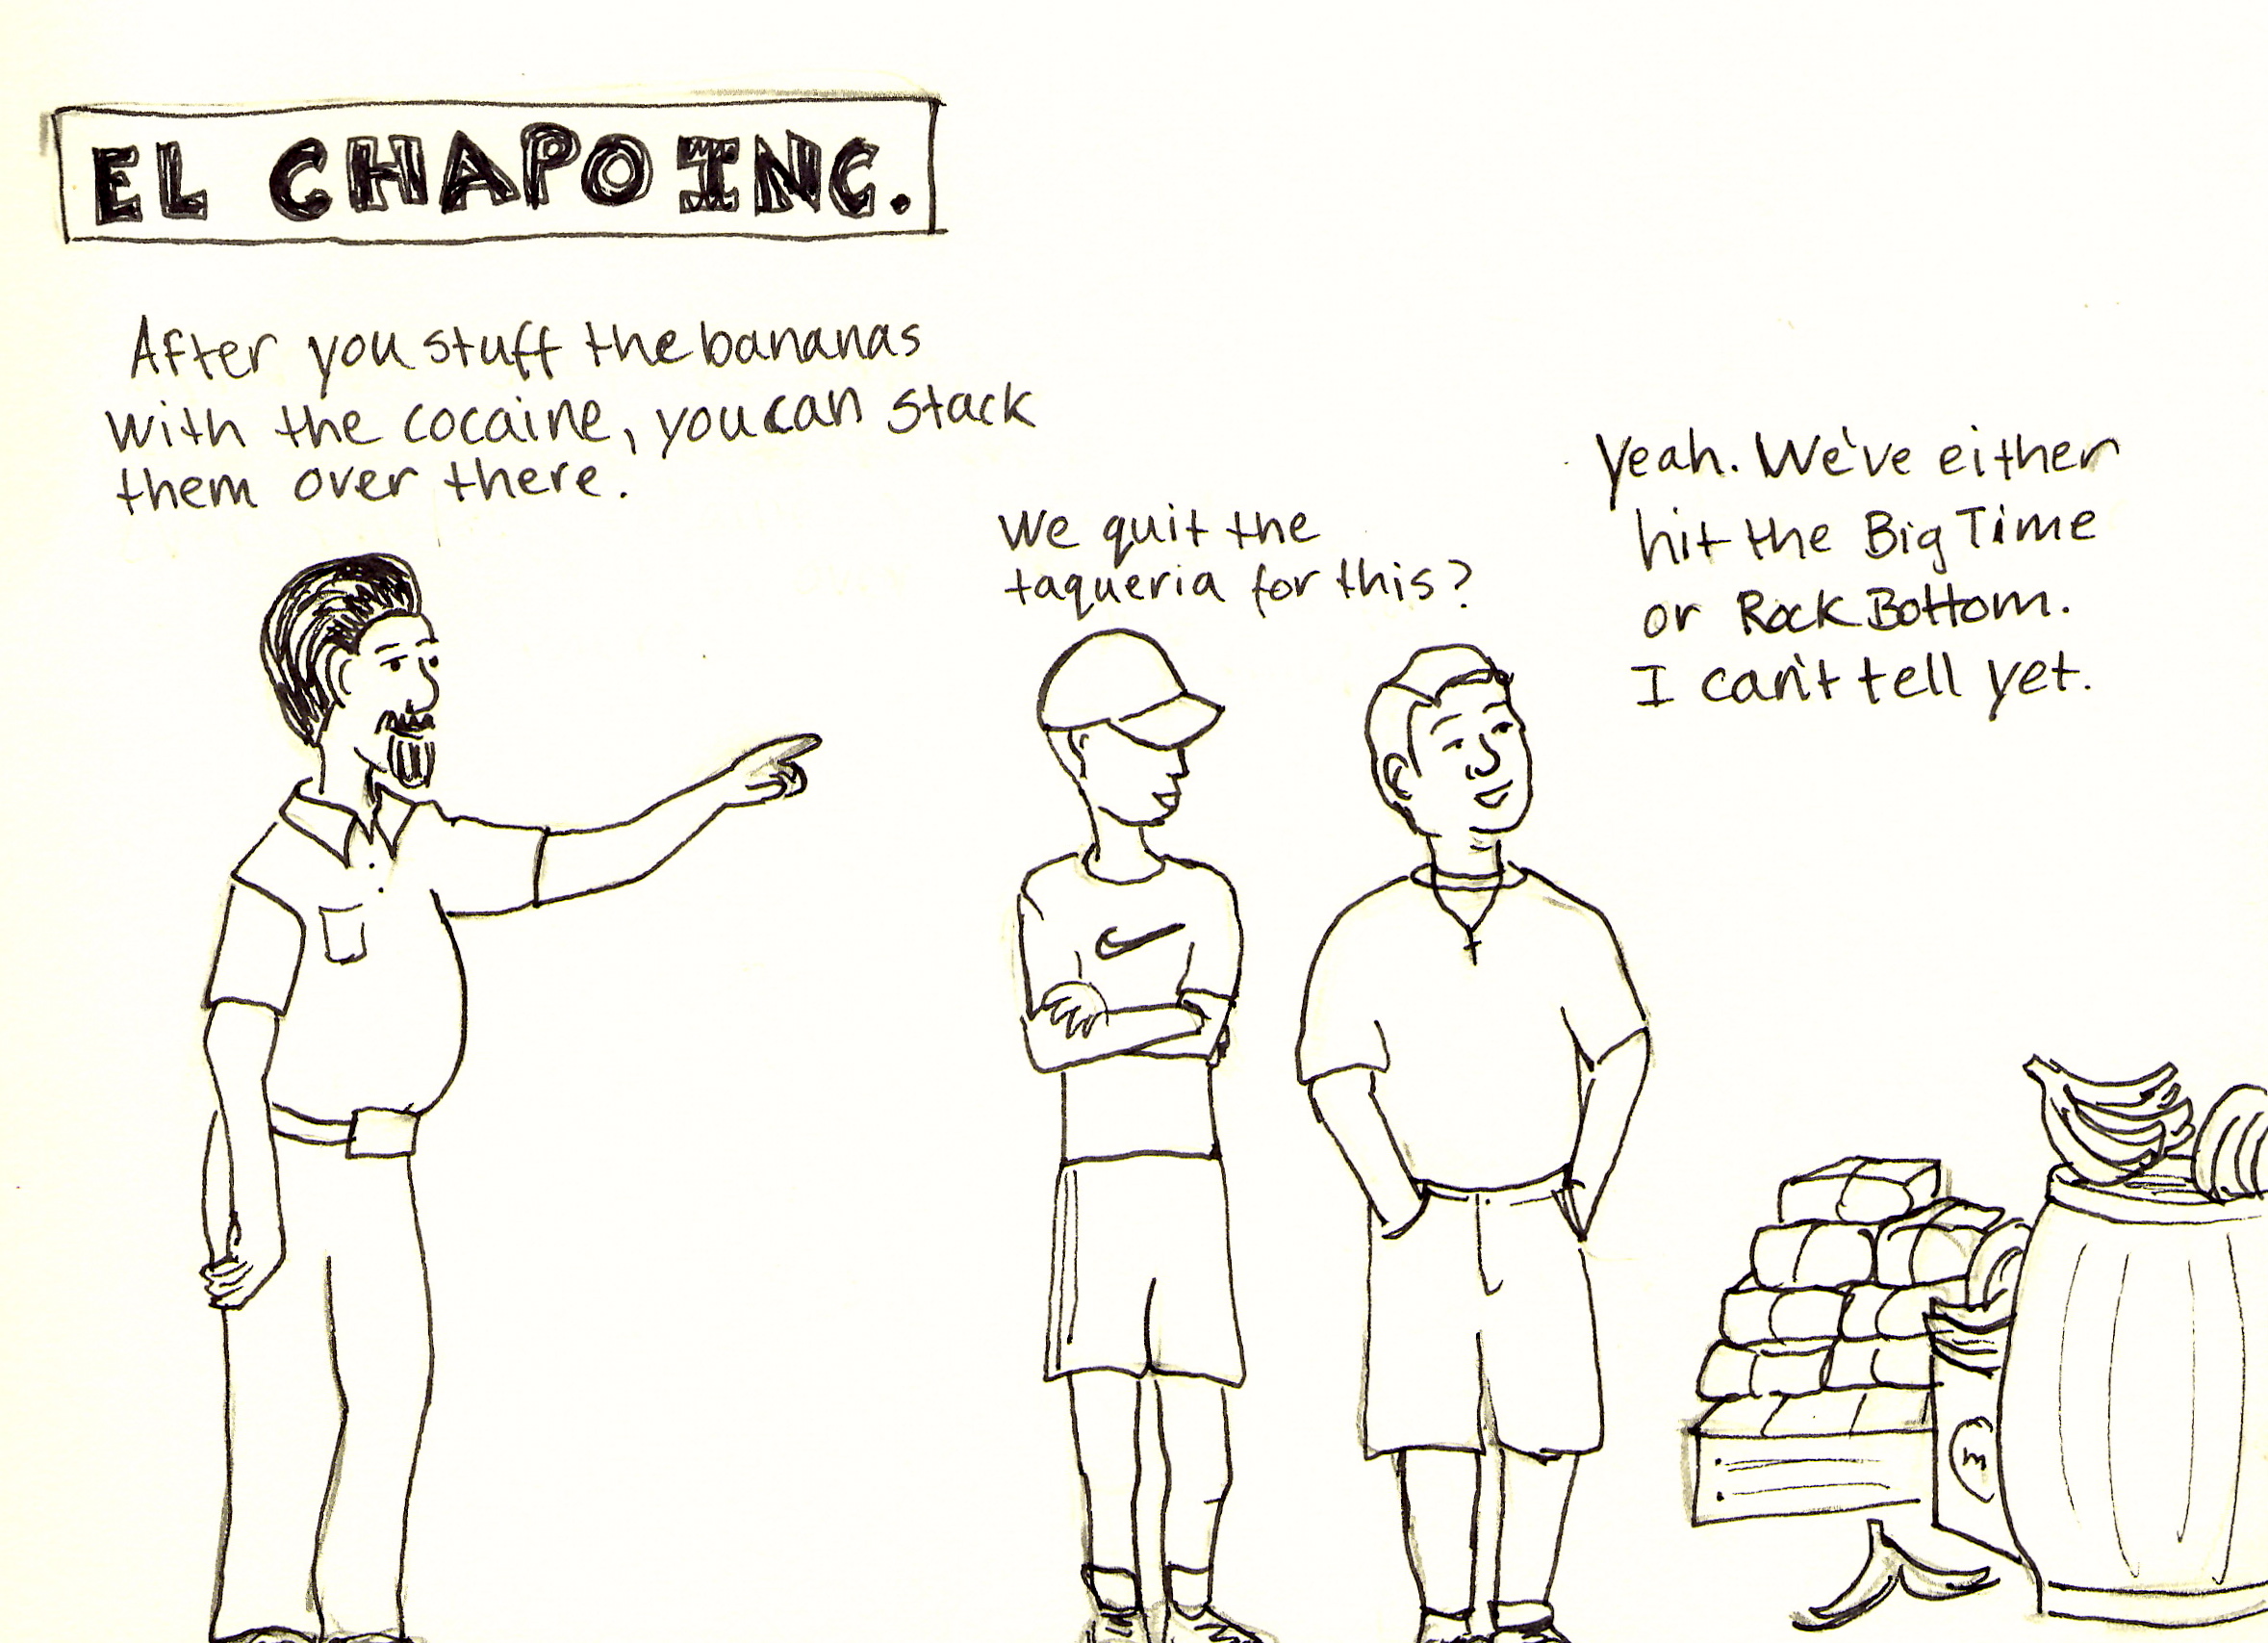 EL CHAPO INC.
After you stuff the bananas
with the cocaine, you can stack
them over there.
We quit the
taqueria for this?
Yeah. We've either
hit the Big Time
or Rock Bottom.
I can't tell yet.
m